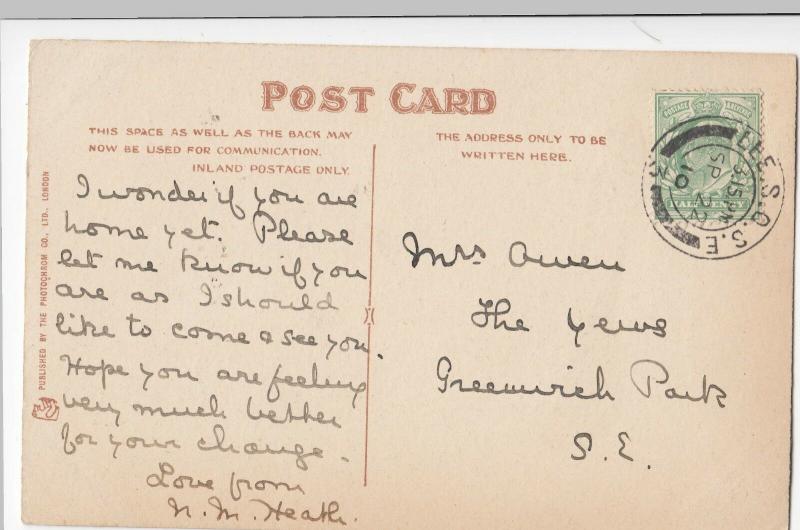 POST CARD
THIS SPACE AS WELL AS THE BACK MAY
NOW BE USED FOR COMMUNICATION.
INLAND POSTAGE ONLY.
THE ADDRESS ONLY TO BE
WRITTEN HERE.
PUBLISHED BY THE PHOTOCHROM CO., LTD., LONDON
I wonder if you are
home yet. Please
let me know if you
are as I should
like to come & see you.
Hope you are feeling
very much better
for your change.
Love from
N. M. Heath.
Mrs Owen
The Yews
Greenwich Park
S.E.
POSTAGE & REVENUE
HALFPENNY
LEE. S.O. S.E.
3.15 PM
SP 22
10